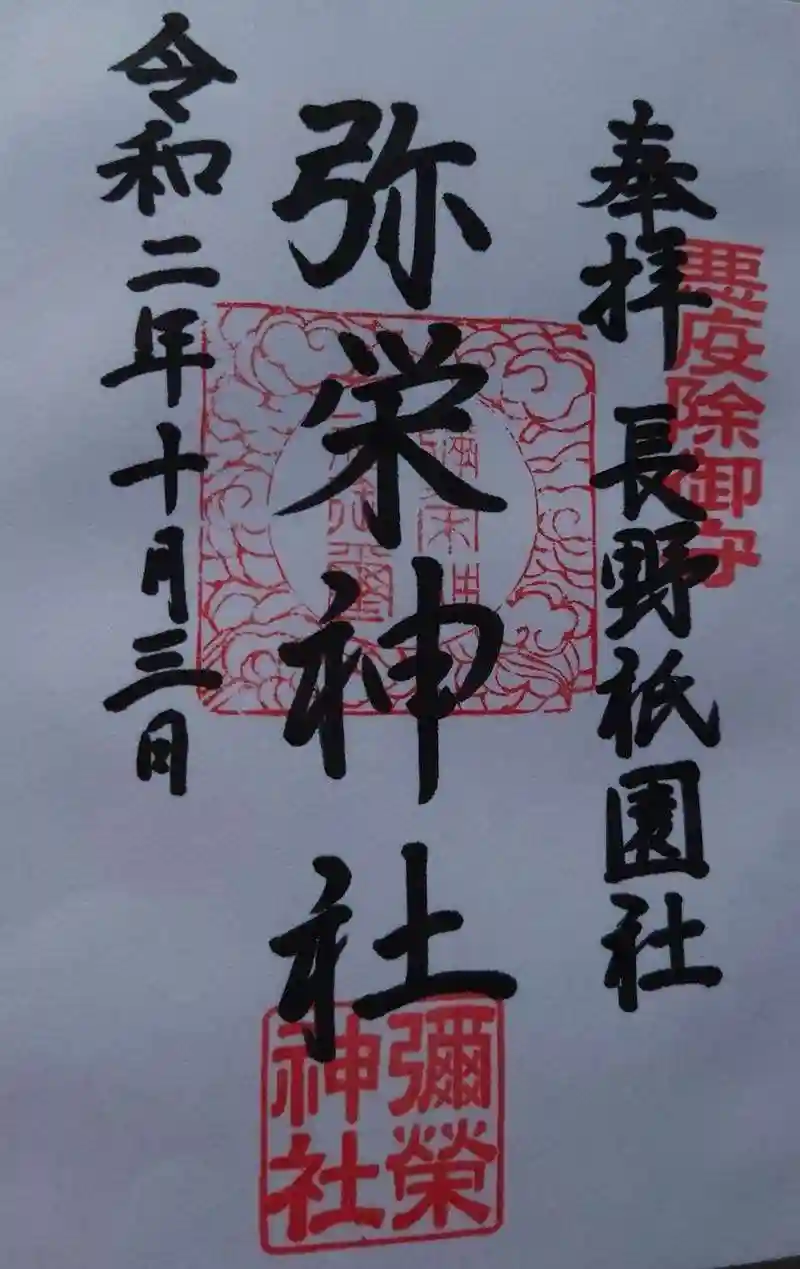 悪疫除御守
奉拝 長野祇園社
弥栄神社
彌榮
神社
令和二年十月三日